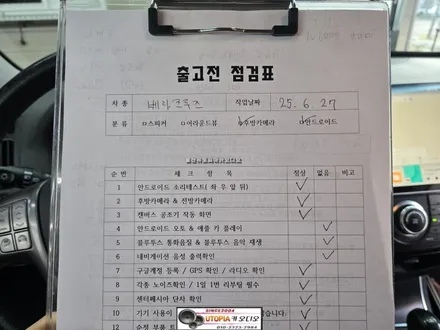 출고전 점검표
차종 베라크루즈 작업날짜 25. 6. 27
분류 □스피커 □어라운드뷰 ☑후방카메라 ☑안드로이드
순번 체크 항목 정상 없음 비고
1 안드로이드 소리테스트( 좌 우 앞 뒤) ✓
2 후방카메라 & 전방카메라 ✓
3 캔버스 공조기 작동 화면 ✓
4 안드로이드 오토 & 애플 카 플레이 ✓
5 블루투스 통화음질 & 블루투스 음악 재생 ✓
6 내비게이션 음성 출력확인 ✓
7 구글계정 등록 / GPS 확인 / 라디오 확인 ✓
8 각종 노이즈확인 / 1일 1번 리부팅 필수 ✓
9 센터페시아 단차 확인 ✓
10 기기 사용이 습니다. ✓
11 주행
12 순정 부품
SINCE2004
UTOPIA 카오디오
010-3323-2984